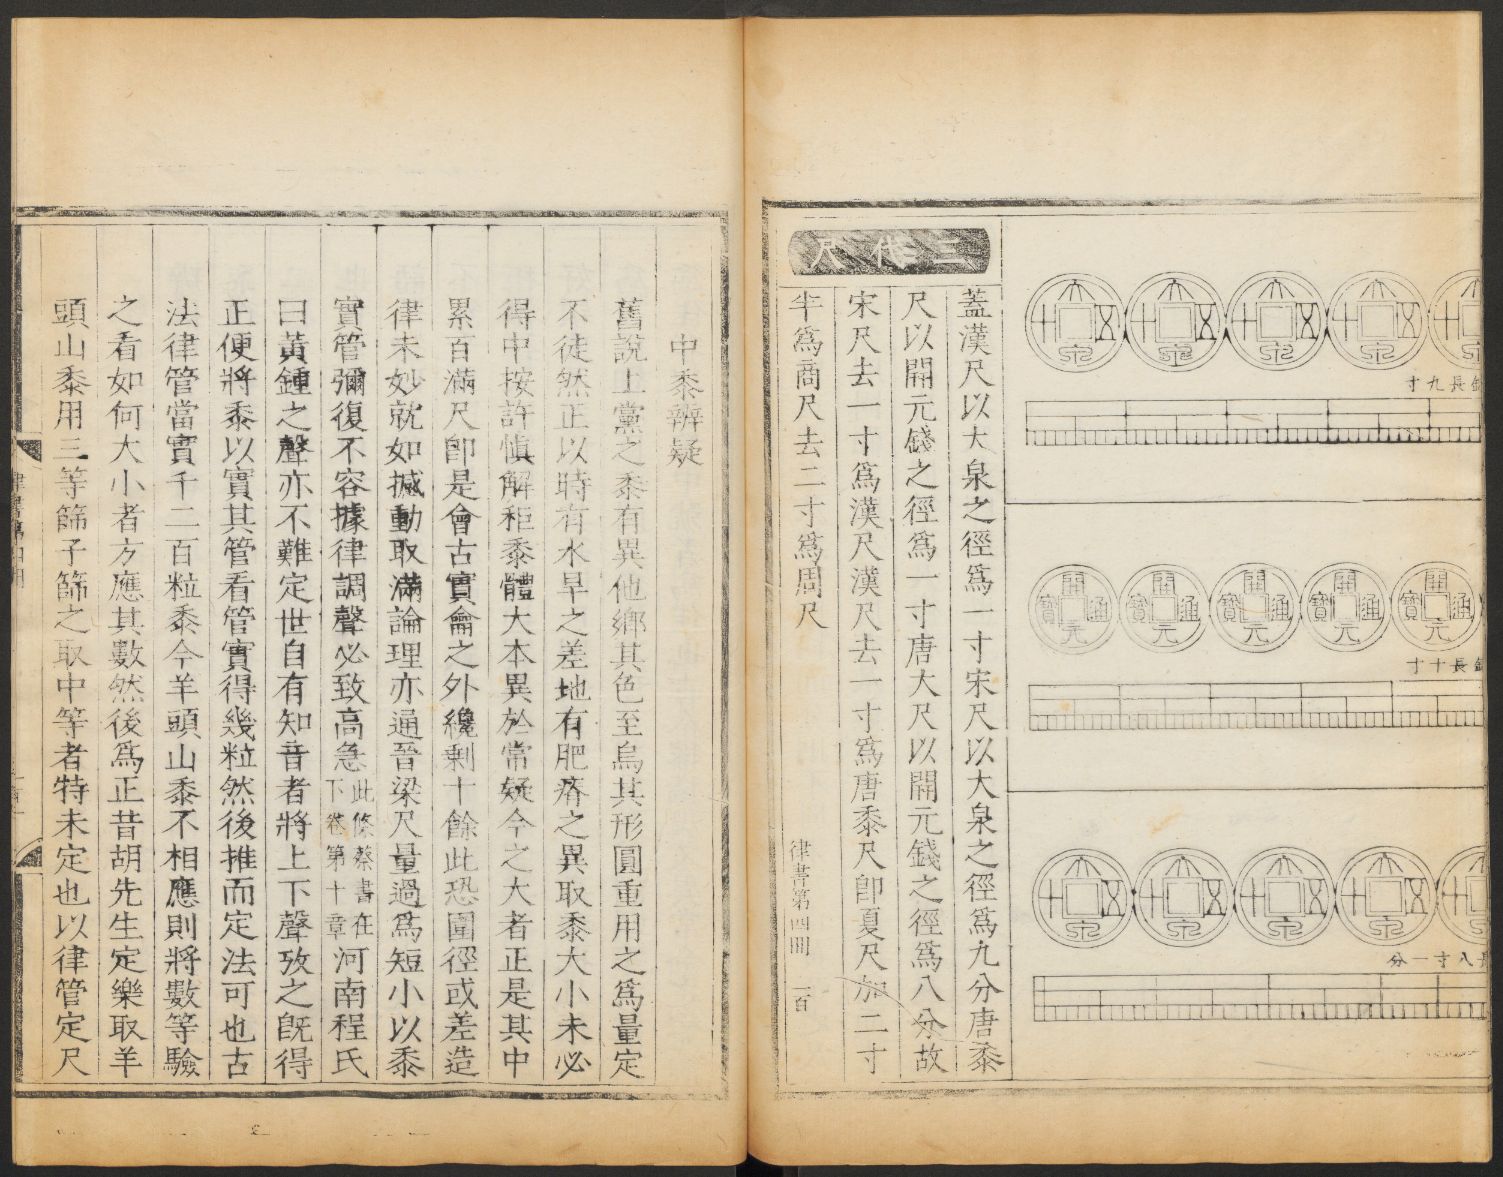 三代尺
大泉五十
大泉五十
大泉五十
大泉五十
長九寸
開元通寶
開元通寶
開元通寶
開元通寶
開元通寶
長十寸
大泉五十
大泉五十
大泉五十
大泉五十
長八寸一分
蓋漢尺以大泉之徑爲一寸宋尺以大泉之徑爲九分唐黍
尺以開元錢之徑爲一寸唐大尺以開元錢之徑爲八分故
宋尺去一寸爲漢尺漢尺去一寸爲唐黍尺卽夏尺加二寸
半爲商尺去二寸爲周尺
律書第四冊 一百
中黍辨疑
舊說上黨之黍有異他鄉其色至烏其形圓重用之爲量定
不徒然正以時有水旱之差地有肥瘠之異取黍大小未必
得中按許愼解秬黍體大本異於常疑今之大者正是其中
累百滿尺卽是會古實龠之外纔剩十餘此恐圍徑或差造
律未妙就如撼動取滿論理亦通晉梁尺量過爲短小以黍
實管彌復不容據律調聲必致高急此條蔡書在下卷第十章河南程氏
曰黃鍾之聲亦不難定世自有知音者將上下聲攷之旣得
正便將黍以實其管看管實得幾粒然後推而定法可也古
法律管當實千二百粒黍今羊頭山黍不相應則將數等驗
之看如何大小者方應其數然後爲正昔胡先生定樂取羊
頭山黍用三等篩子篩之取中等者特未定也以律管定尺